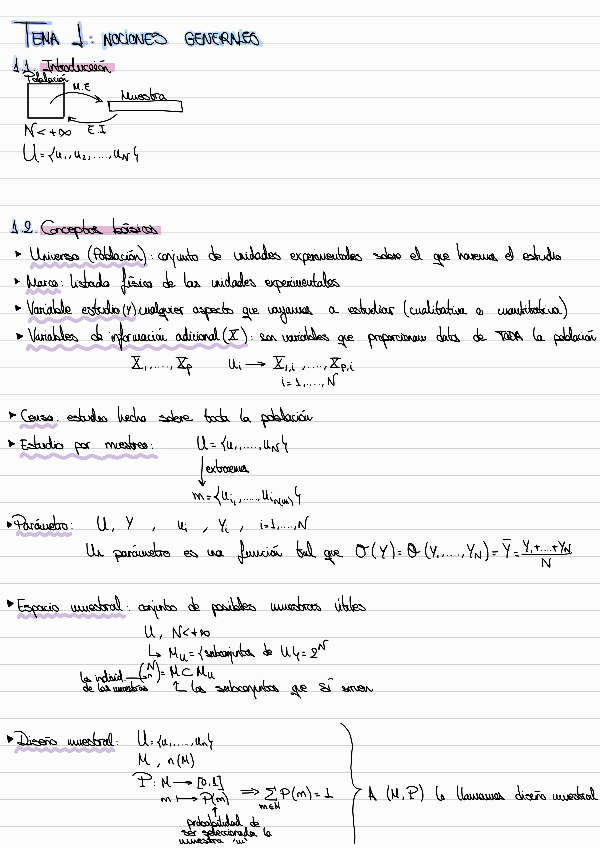 TEMA 1: NOCIONES GENERALES
1.1. Introducción
Población
M.E
Muestra
N<+∞ E.I
U={u₁,u₂,....,u_N}
1.2. Conceptos básicos
▸ Universo (Población): conjunto de unidades experimentales sobre el que haremos el estudio
▸ Marco: listado físico de las unidades experimentales
▸ Variable estudio (Y) cualquier aspecto que vayamos a estudiar (cualitativa o cuantitativa)
▸ Variables de información adicional (X): son variables que proporcionan datos de TODA la población
X₁,....,X_p u_i → X_{1,i},....,X_{p,i}
i=1,....,N
▸ Censo: estudio hecho sobre toda la población
▸ Estudio por muestreo: U={u₁,....,u_N}
↓ extraemos
m={u_{i₁},....,u_{i_{n(m)}}}
▸ Parámetro: U, Y , u_i , Y_i , i=1,...,N
Un parámetro es una función tal que θ(Y)=θ(Y₁,....,Y_N)=Ȳ=(Y₁+...+Y_N)/N
▸ Espacio muestral: conjunto de posibles muestras útiles
U, N<+∞
↳ M_U={subconjuntos de U}=2^N
(N n)=M⊂M_U
de las muestras ↳ los subconjuntos que SÍ sirven
▸ Diseño muestral: U={u₁,....,u_N}
M, n(M)
P: M → [0,1]
m ↦ P(m) ⇒ ∑_{m∈M} P(m)=1 A (M,P) lo llamamos diseño muestral
↑
probabilidad de
ser seleccionada la
muestra "m"